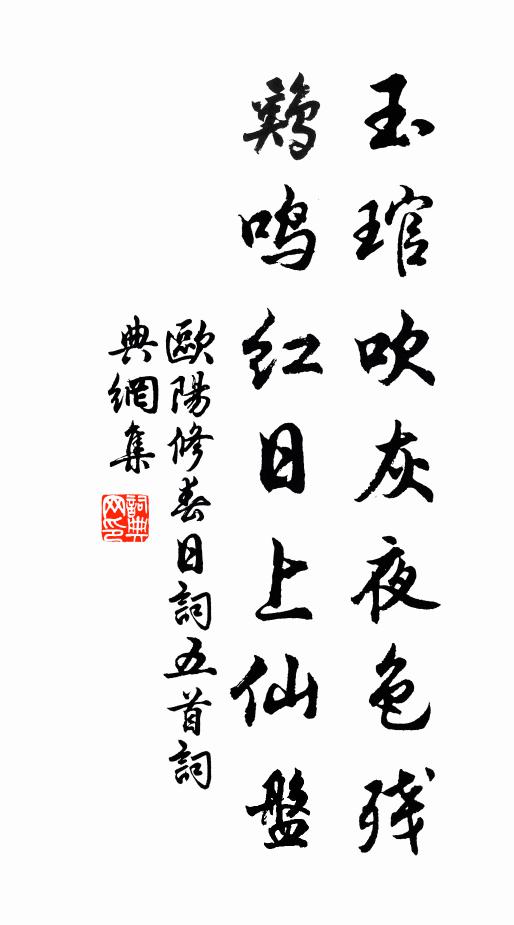 玉琯吹灰夜色残
鸡鸣红日上仙盤
歐陽修春日詞五首詞
典網集
詞典网印